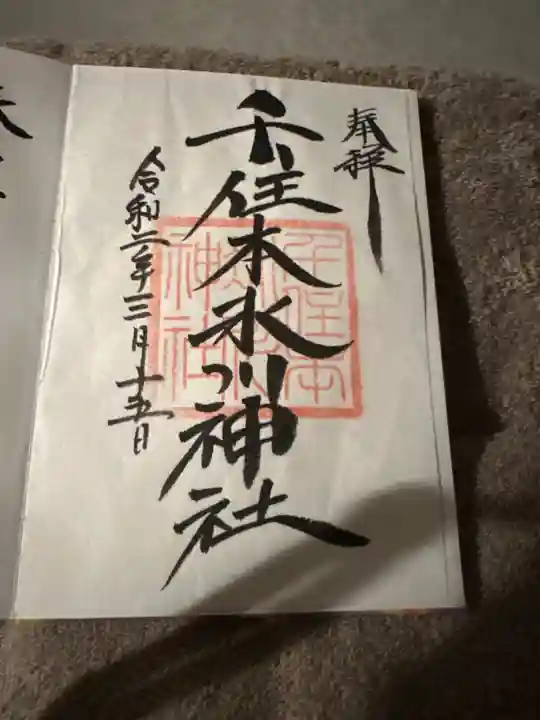 奉拝
千住本氷川神社
令和二年三月十五日
千住本
氷川
神社